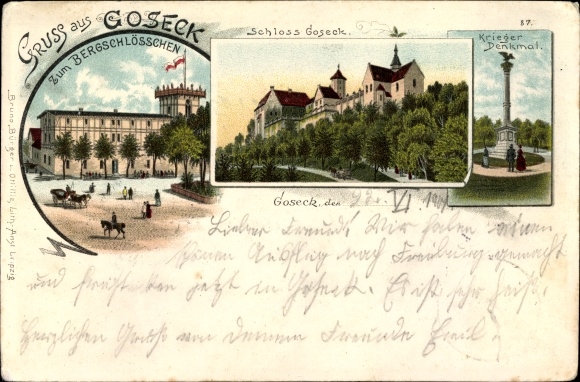 Gruss aus Goseck
Zum Bergschlösschen
Schloss Goseck.
87.
Krieger
Denkmal.
Bruno Bürger & Ottillie, Lith. Anst. Leipzig
Goseck, den VI. 19
Lieber Freund! Wir haben einen
schönen Ausflug nach Freiburg gemacht
und frühstücken jetzt in Goseck. Es ist sehr heiß.
Herzlichen Gruß von deinem Freunde Emil.